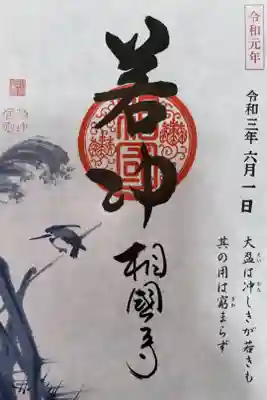 令和元年
令和三年 六月 一日
大盈は冲しきが若きも
其の用は窮まらず
若冲
相國寺